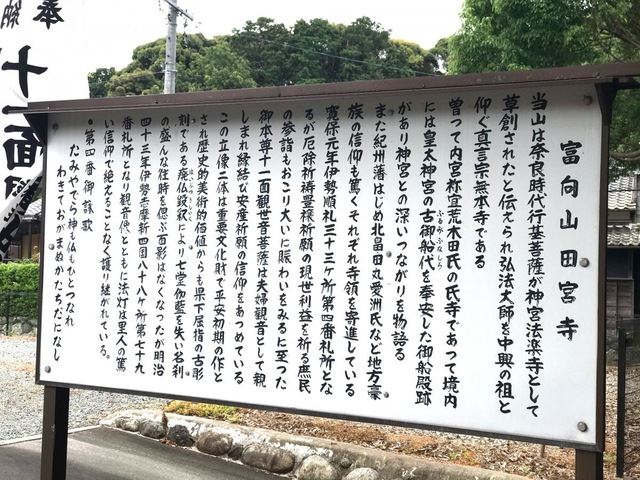 富向山田宮寺
当山は奈良時代行基菩薩が神宮法楽寺として
草創されたと伝えられ弘法大師を中興の祖と
仰ぐ真言宗無本寺である
曽って内宮祢宜荒木田氏の氏寺であって境内
には皇太神宮の古御船代を奉安した御船殿跡
ふるみふなしろ
があり神宮との深いつながりを物語る
また紀州藩はじめ北畠田丸愛洲氏など地方豪
族の信仰も篤くそれぞれ寺領を寄進している
寛保元年伊勢順礼三十三ヶ所第四番札所とな
るが厄除祈祷豊穣祈願の現世利益を祈る庶民
の参詣もおこり大いに賑わいをみるに至った
御本尊十一面観世音菩薩は夫婦観音として親
しまれ縁結び安産祈願の信仰をあつめている
この立像二体は重要文化財で平安初期の作と
され歴史的美術的価値からも県下屈指の古彫
刻である廃仏毀釈により七堂伽藍を失い名刹
はいぶつきしゃく
の盛んな往時を偲ぶ面影はなくなったが明治
四十三年伊勢志摩新四国八十八ヶ所第七十九
番札所となり観音像とともに法灯は里人の篤
い信仰で絶えることなく護り継がれている。
・第四番御詠歌
たみやでら神も仏もひとつなれ
わきておがまぬかたちだになし
奉
十一面観